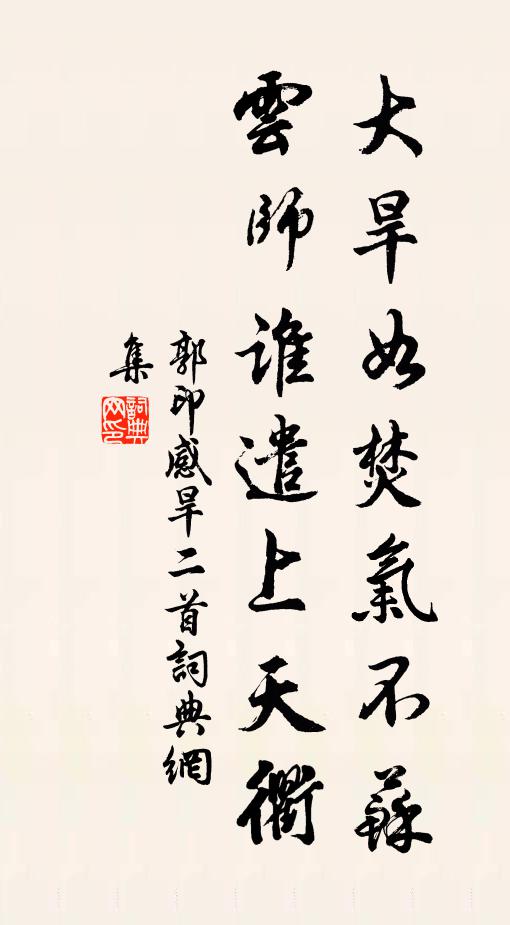 大旱如焚氣不蘇
雲師誰遣上天衢
郭印感旱二首詞典網
集
詞典網印